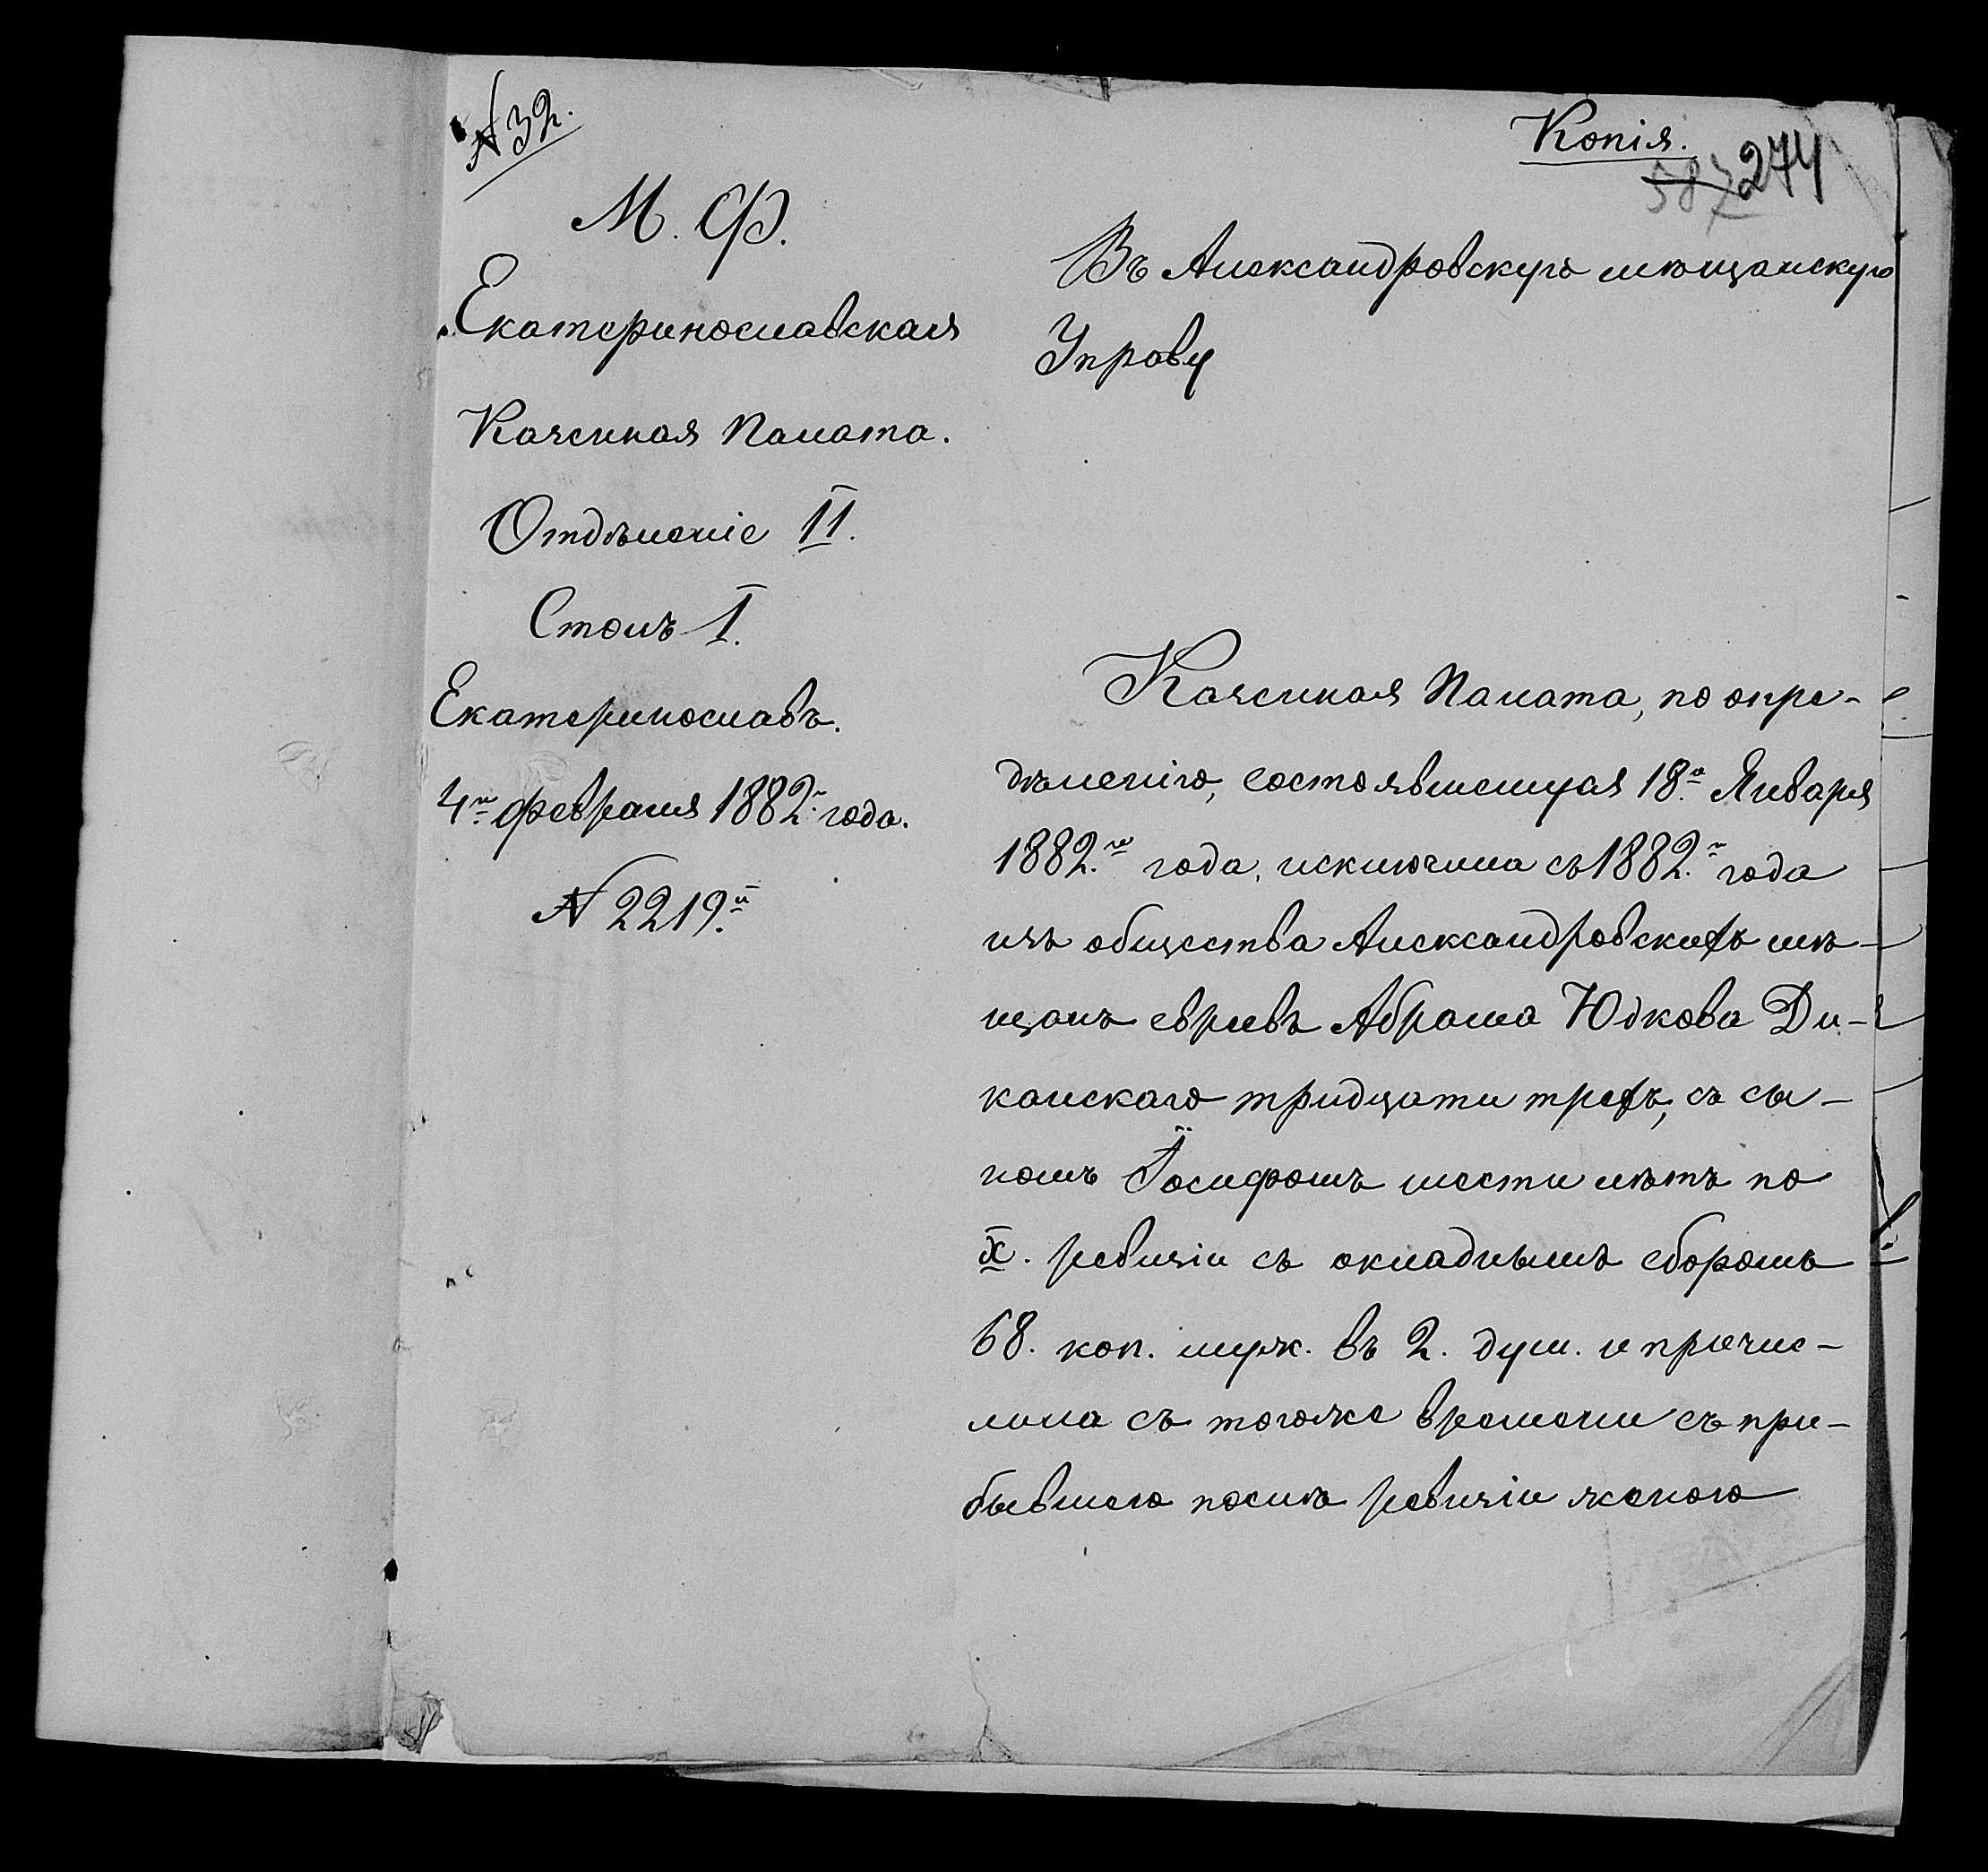 N 32.
Копія.
587 274
М. Ф.
Екатеринославская
Казенная Палата.
Отдѣленіе II.
Столъ I.
Екатеринославъ.
4го февраля 1882 года.
N 2219й
Въ Александровскую мѣщанскую
Управу
Казенная Палата, по опре-
дѣленію, состоявшемуся 18го Января
1882го года, исключила съ 1882го года
изъ общества Александровскихъ мѣ-
щанъ евреевъ Абрама Юдкова Ди-
канскаго тридцати трехъ, съ сы-
номъ Іосифомъ шести лѣтъ по
X. ревизіи съ окладнымъ сборомъ
68. коп. муж. въ 2. душ. и причис-
лила съ тогоже времени съ при-
бывшею послѣ ревизіи женою